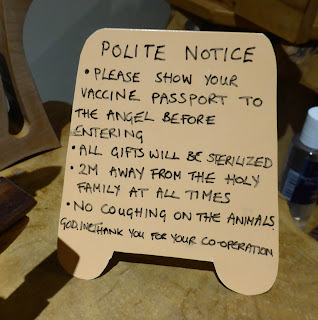 POLITE NOTICE
• PLEASE SHOW YOUR
VACCINE PASSPORT TO
THE ANGEL BEFORE
ENTERING
• ALL GIFTS WILL BE STERILIZED
• 2M AWAY FROM THE HOLY
FAMILY AT ALL TIMES
• NO COUGHING ON THE ANIMALS
THANK YOU FOR YOUR CO-OPERATION